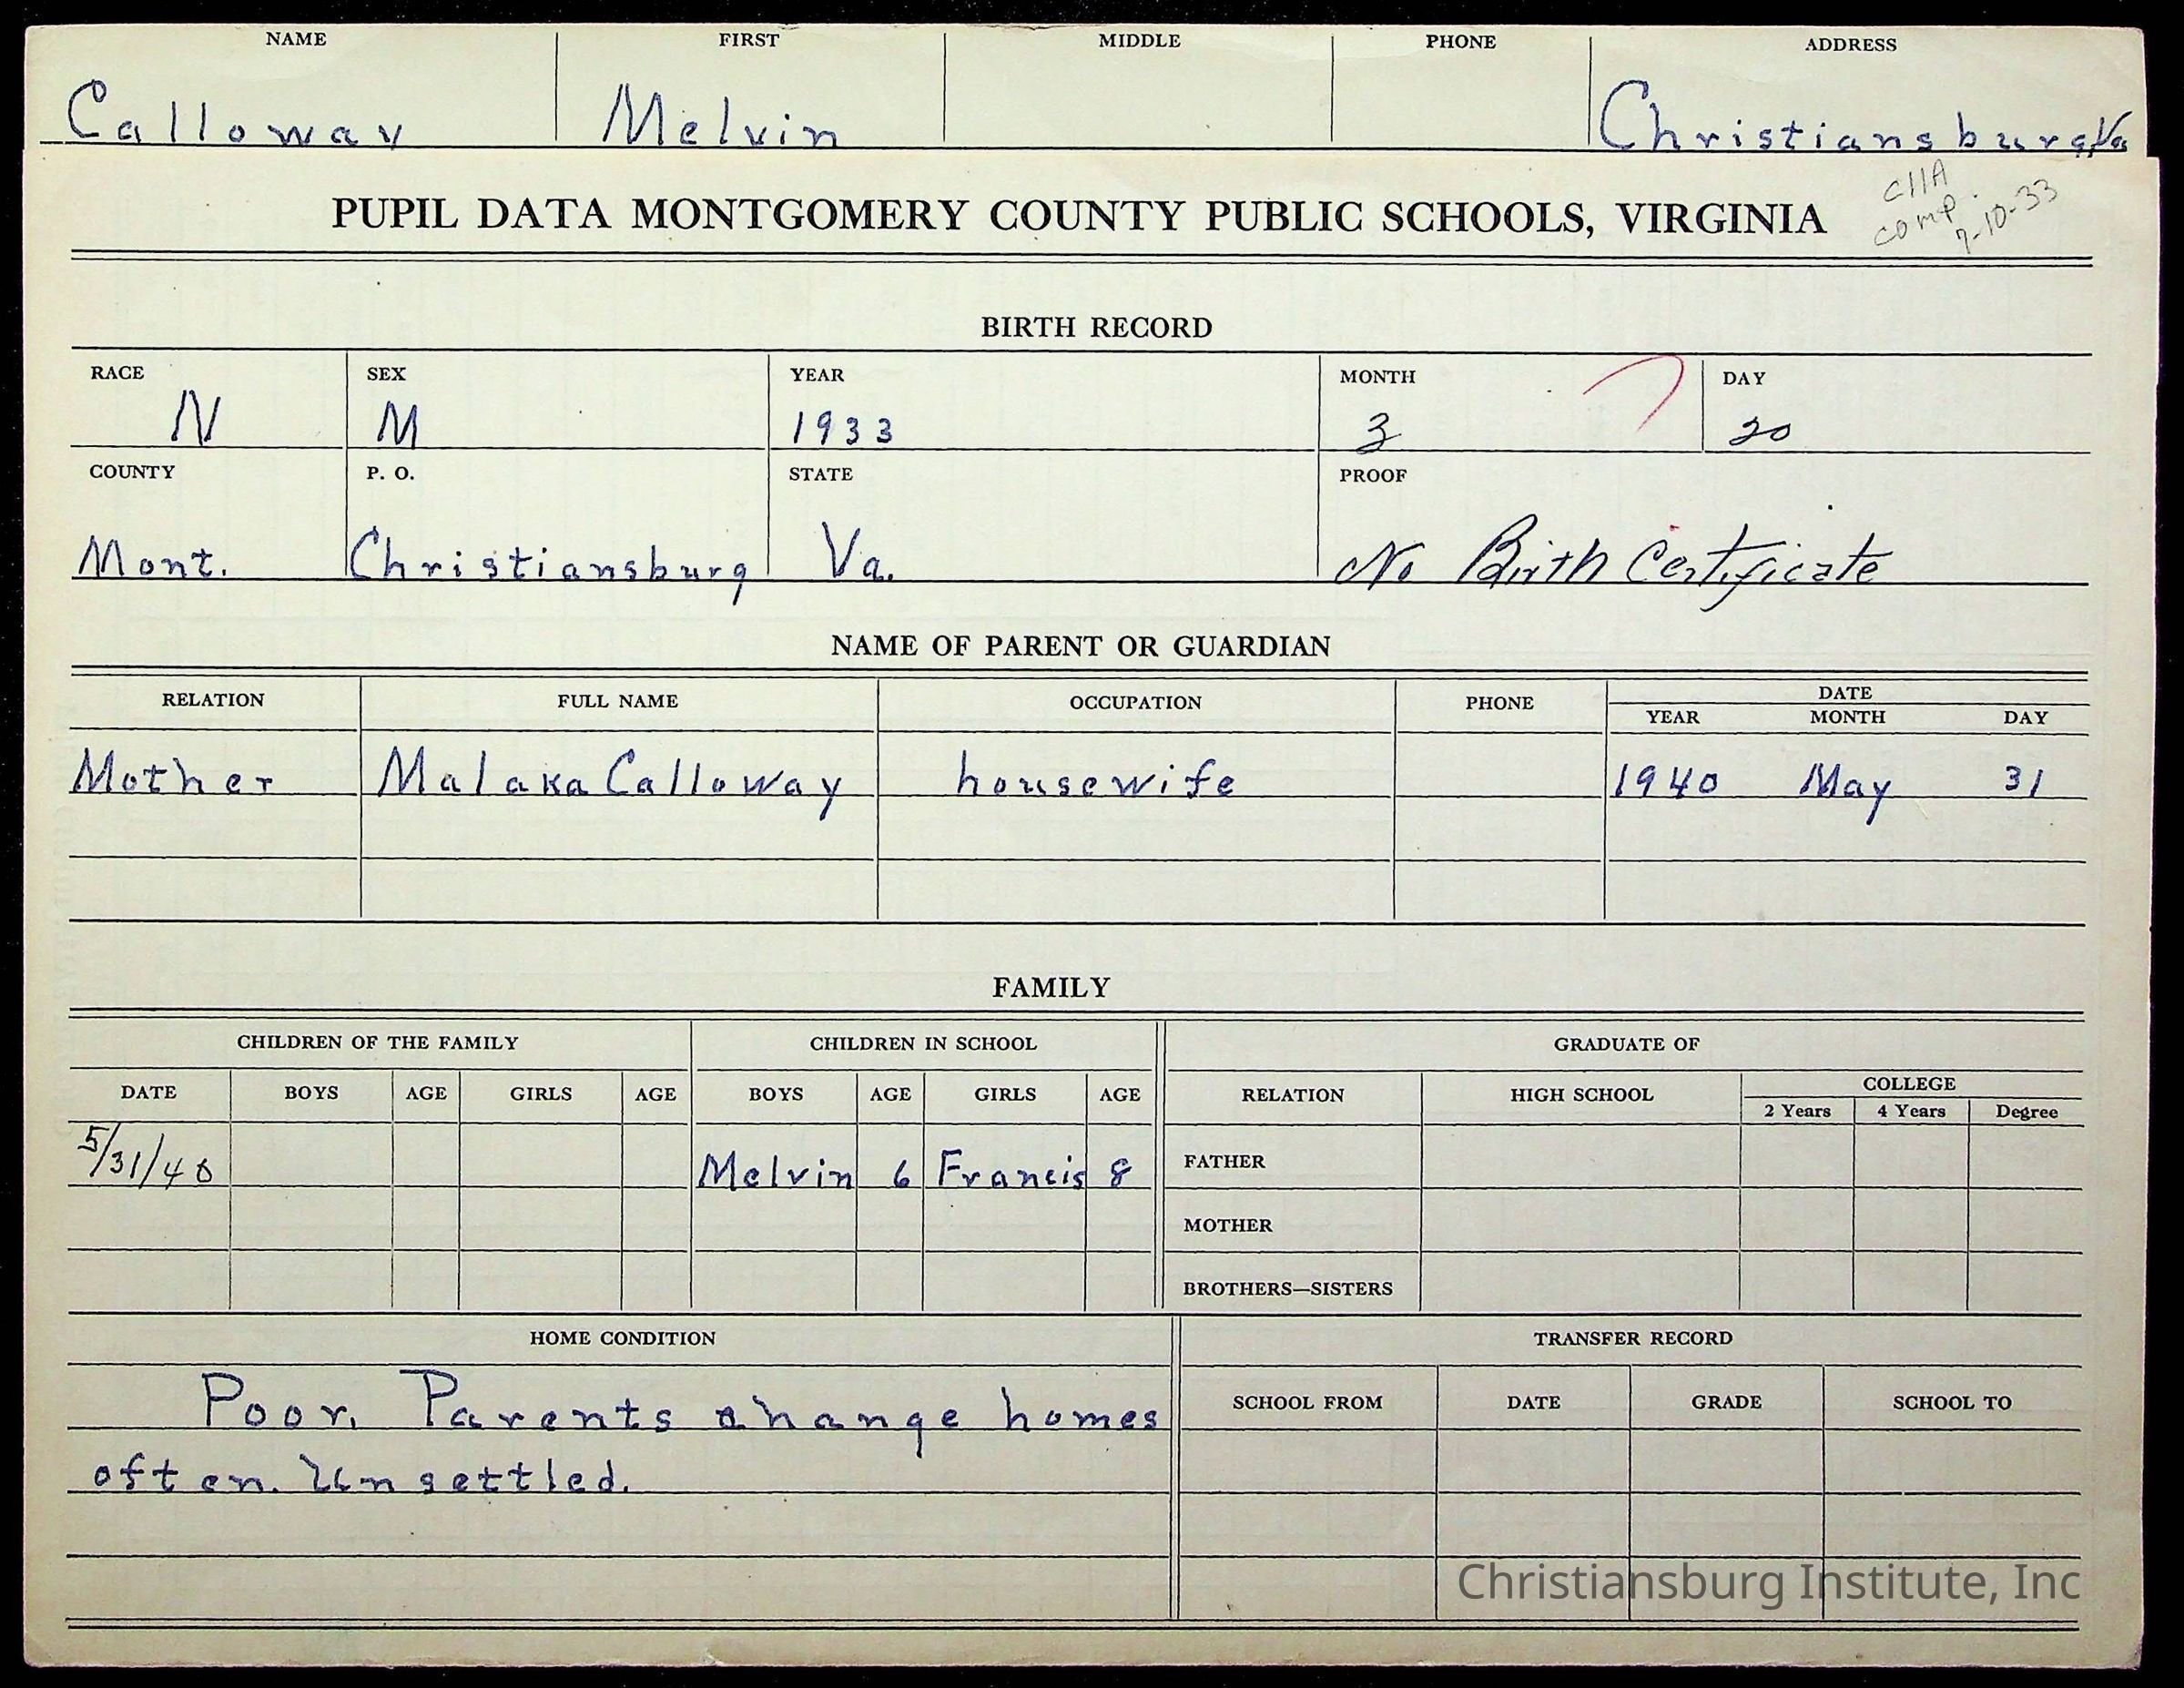 NAME FIRST MIDDLE PHONE ADDRESS
Calloway Melvin Christiansburg, Va.
PUPIL DATA MONTGOMERY COUNTY PUBLIC SCHOOLS, VIRGINIA
CIIA
comp.
7-10-33
BIRTH RECORD
RACE SEX YEAR MONTH DAY
N M 1933 3 20
COUNTY P. O. STATE PROOF
Mont. Christiansburg Va. No Birth Certificate
NAME OF PARENT OR GUARDIAN
RELATION FULL NAME OCCUPATION PHONE DATE
YEAR MONTH DAY
Mother Malaka Calloway housewife 1940 May 31
FAMILY
CHILDREN OF THE FAMILY CHILDREN IN SCHOOL GRADUATE OF
DATE BOYS AGE GIRLS AGE BOYS AGE GIRLS AGE RELATION HIGH SCHOOL COLLEGE
2 Years 4 Years Degree
5/31/40 Melvin 6 Francis 8 FATHER
MOTHER
BROTHERS—SISTERS
HOME CONDITION TRANSFER RECORD
Poor. Parents change homes SCHOOL FROM DATE GRADE SCHOOL TO
often. Unsettled.
Christiansburg Institute, Inc